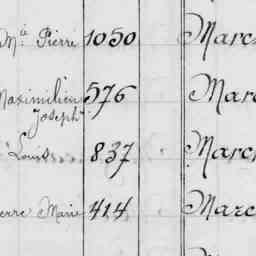 Mie Pierre 1050 Marc
Maximilien 576 Marc
Joseph
Louis 837 Marc
erre Marie 414 Marc